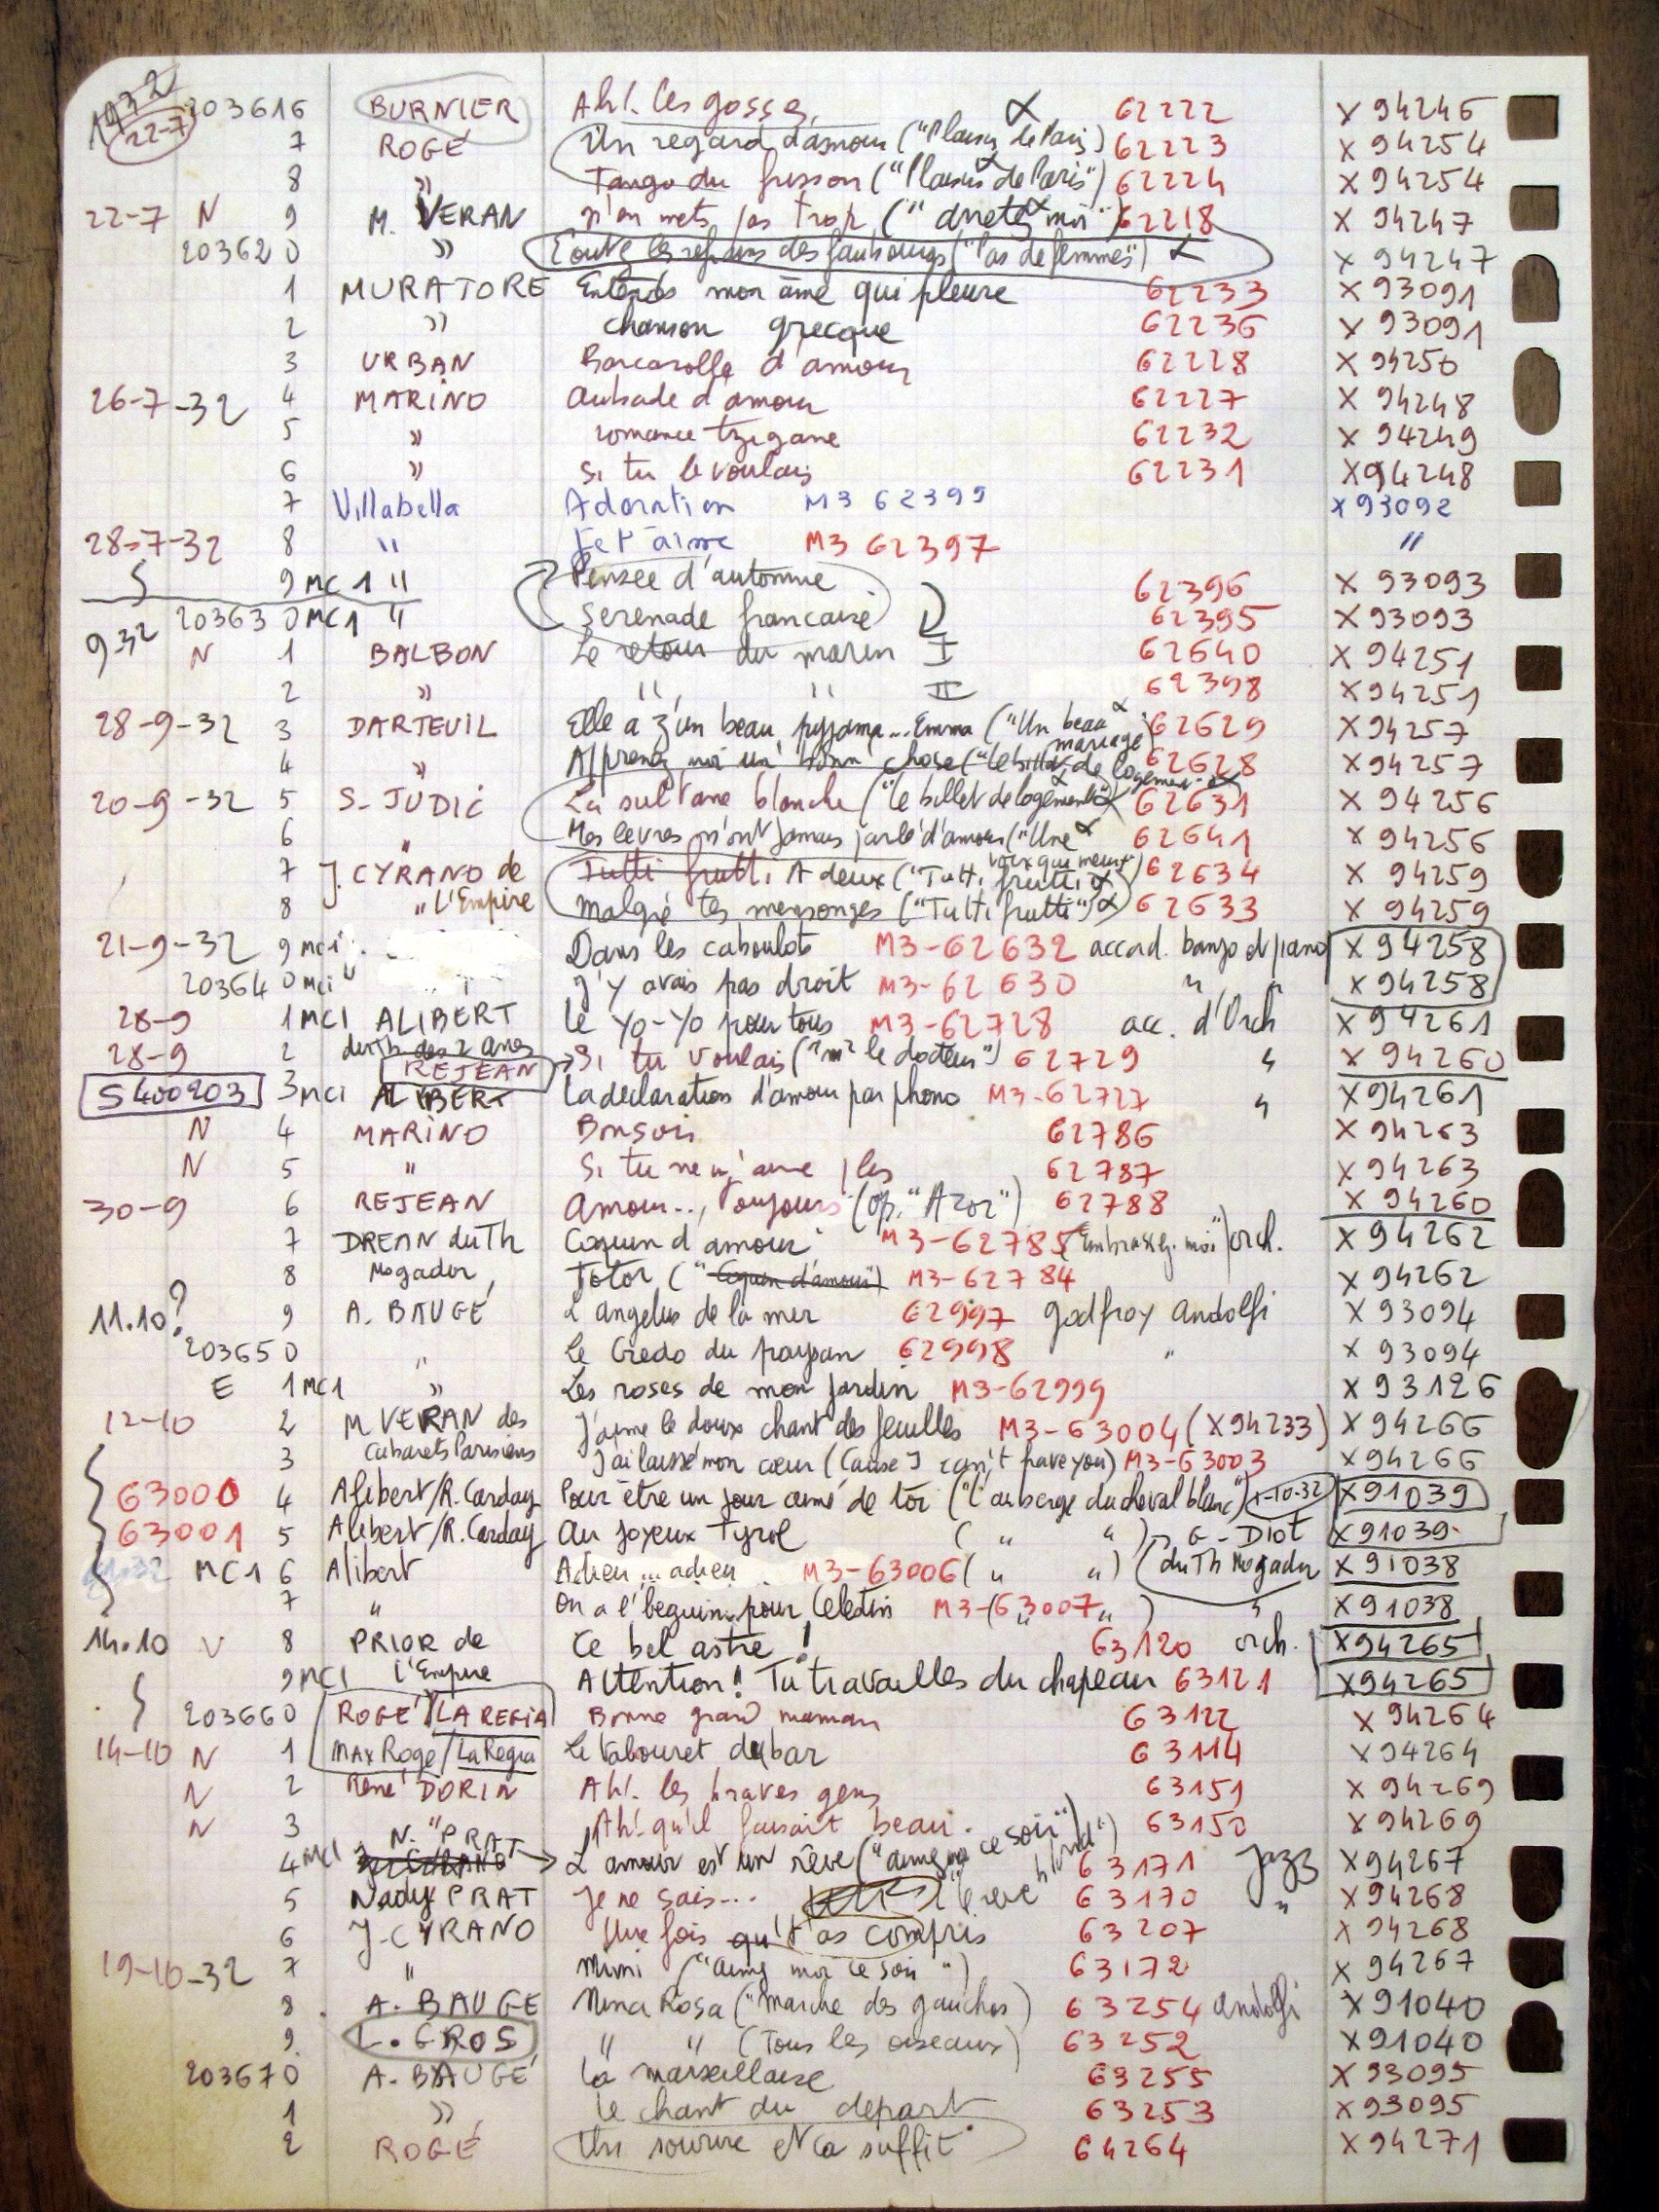 1932 203616 BURNIER Ah! les gosses α 62222 X 94246
22-7 7 ROGÉ Un regard d'amour ("Plaisirs de Paris") 62223 X 94254
8 " Tango du frisson ("Plaisirs de Paris") 62224 X 94254
22-7 N 9 M. VERAN n'en mets pas trop (" moi") 62218 X 94247
203620 " Ecoute les refrains des faubourgs ("pas de femmes") α X 94247
1 MURATORE Entends mon âme qui pleure 62233 X 93091
2 " chanson grecque 62236 X 93091
3 URBAN Barcarolle d'amour 62228 X 94250
26-7-32 4 MARINO Aubade d'amour 62227 X 94248
5 " romance tzigane 62232 X 94249
6 " Si tu le voulais 62231 X 94248
7 Villabella Adoration M3 62399 X 93092
28-7-32 8 " Je t'aime M3 62397 "
9 MC1 " Pensée d'automne 62396 X 93093
203630 MC1 " Serenade francaise 62395 X 93093
9-32 N 1 BALBON Le retour du marin I 62640 X 94251
2 " " " II 62398 X 94251
28-9-32 3 DARTEUIL Elle a z'un beau pyjama... Emma ("Un beau mariage") 62629 X 94257
4 " Apprenez moi un' bonn' chose ("le billet de logement") 62628 X 94257
20-9-32 5 S. JUDIC La sultane blanche ("le billet de logement") α 62631 X 94256
6 " Mes levres n'ont jamais parlé d'amour ("Une voix qui meurt") 62641 X 94256
7 J. CYRANO de Tutti frutti A deux ("Tutti frutti") α 62634 X 94259
8 " L'Empire Malgré tes mensonges ("Tutti frutti") α 62633 X 94259
21-9-32 9 MC1 Dans les caboulots M3-62632 accord. banjo et piano X 94258
203640 MC1 J'y avais pas droit M3-62630 " " X 94258
28-9 1 MC1 ALIBERT Le Yo-Yo pour tous M3-62728 acc. d'Orch X 94261
28-9 2 du Th des 2 anes REJEAN → Si tu voulais ("Mme le docteur") 62729 " X 94260
S 400203 3 MC1 ALIBERT La declaration d'amour par phono M3-62727 " X 94261
N 4 MARINO Bonsoir 62786 X 94263
N 5 " Si tu ne m'aime plus 62787 X 94263
30-9 6 REJEAN Amour.., Toujours (op. "Azor") 62788 X 94260
7 DREAN du Th Coquin d'amour M3-62785 ("Embrassez-moi") orch. X 94262
8 Mogador Totor ("Coquin d'amour") M3-62784 X 94262
11.10? 9 A. BAUGÉ L'angelus de la mer 62997 Godfroy Andolfi X 93094
203650 " Le Credo du paysan 62998 " X 93094
E 1 MC1 " Les roses de mon jardin M3-62999 X 93126
12-10 2 M VERAN des J'aime le doux chant des feuilles M3-63004 (X94233) X 94266
3 Cabarets Parisiens J'ai laissé mon cœur (Cause I can't have you) M3-63003 X 94266
63000 4 Alibert/R. Carday Pour être un jour aimé de toi ("l'auberge du cheval blanc") 1-10-32 X 91039
63001 5 Alibert/R. Carday Au joyeux Tyrol ( " " ) G. Diot X 91039
MC1 6 Alibert Adieu... adieu M3-63006 ( " " ) (du Th Mogador X 91038
7 " On a l'beguin pour Celestin M3-63007 ( " " ) " X 91038
14.10 V 8 PRIOR de Ce bel astre! 63120 orch. X 94265
9 MC1 L'Empire Attention! Tu travailles du chapeau 63121 X 94265
203660 ROGÉ/LA REGIA Bonne grand maman 63122 X 94264
14-10 N 1 MAX Rogé/La Regia Le tabouret du bar 63114 X 94264
N 2 René DORIN Ah! les braves gens 63151 X 94269
N 3 " Ah! qu'il faisait beau. 63150 X 94269
4 MC1 N. PRAT → L'amour est un rêve ("aimez moi ce soir") 63171 Jazz X 94267
5 Nady PRAT Je ne sais... ("le reve blond") 63170 " X 94268
6 J. CYRANO Une fois qu't'as compris 63207 X 94268
19-10-32 7 " Mimi ("aimez moi ce soir") 63172 X 94267
8 A. BAUGE Nina Rosa ("marche des gauchos) 63254 Andolfi X 91040
9 L. GROS " " (Tous les oiseaux) 63252 X 91040
203670 A. BAUGÉ La marseillaise 63255 X 93095
1 " Le chant du depart 63253 X 93095
2 ROGÉ Un sourire et ca suffit 64264 X 94271